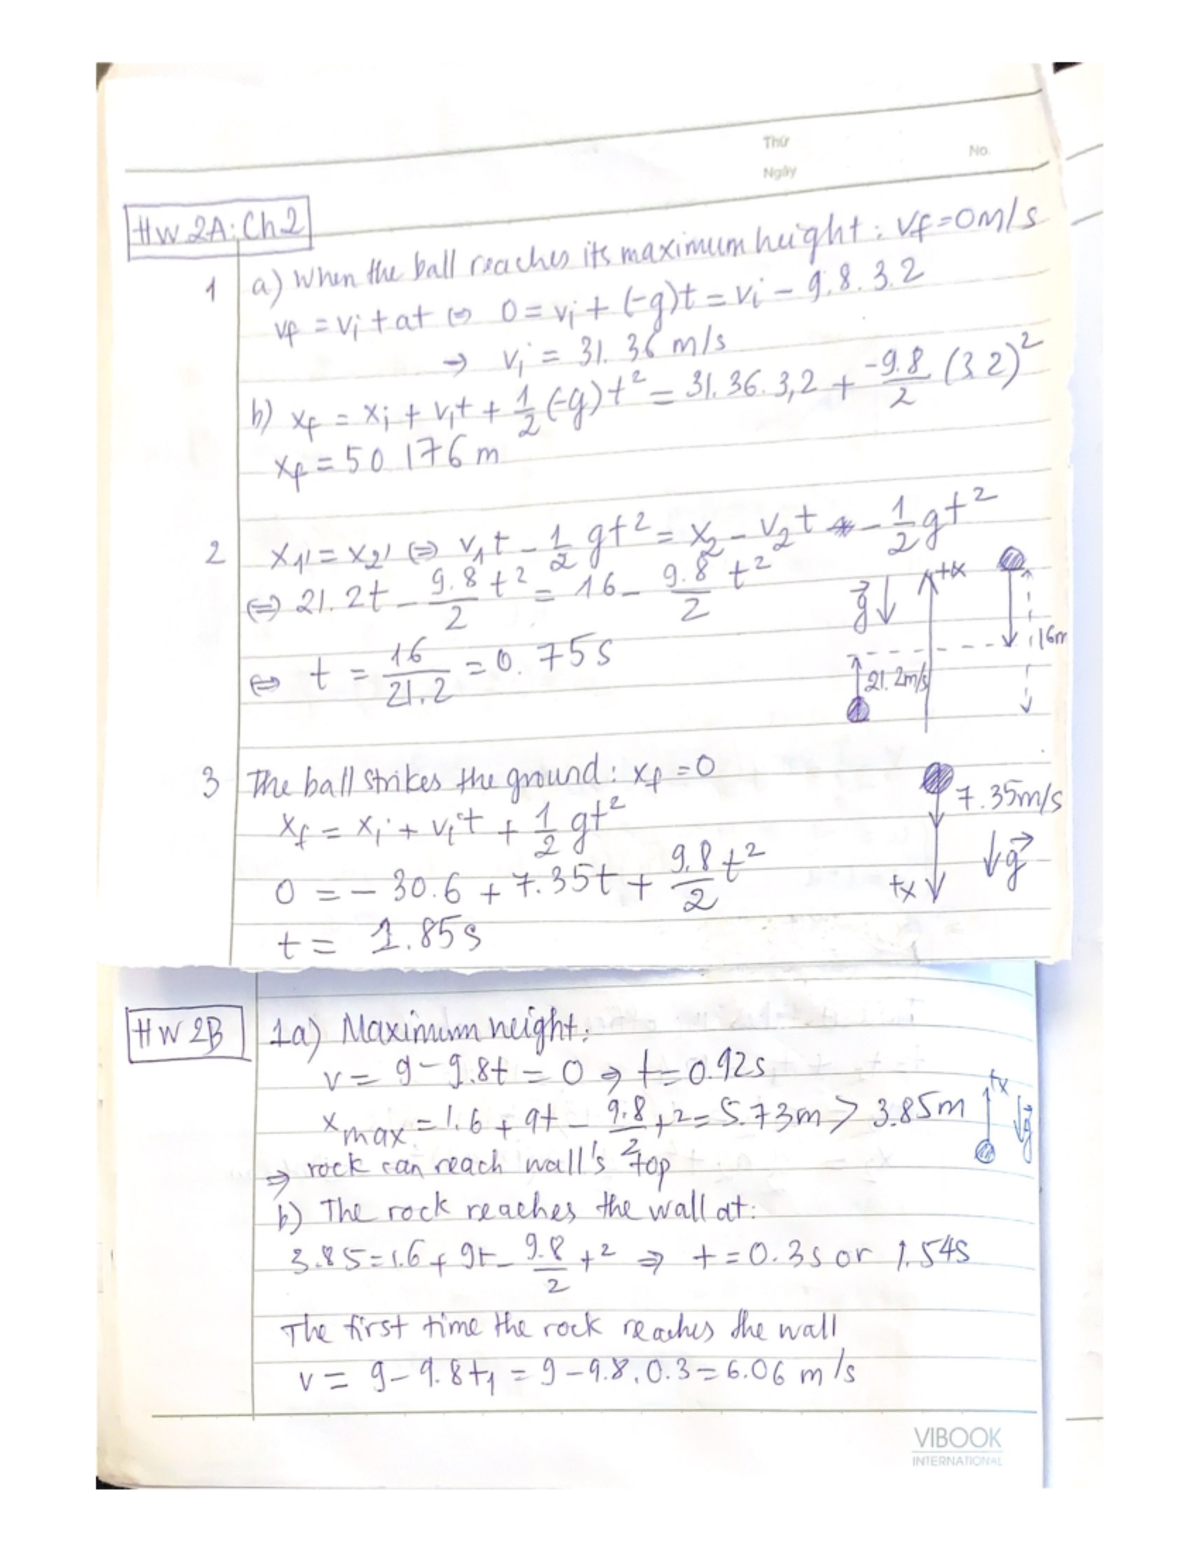 Thứ
No.
Ngày
HW 2A: Ch2
1 a) When the ball reaches its maximum height: vf = 0 m/s
vf = vi + at ⇔ 0 = vi + (-g)t = vi - 9.8.3.2
→ vi = 31.36 m/s
b) xf = xi + vit + 1/2 (-g)t² = 31.36.3,2 + -9.8/2 (3.2)²
xf = 50.176 m
2 x1' = x2' ⇔ v1t - 1/2 gt² = x2 - v2t - 1/2 gt²
⇔ 21.2t - 9.8/2 t² = 16 - 9.8/2 t²
⇔ t = 16/21.2 = 0.75s
g +x
16m
21.2m/s
3 The ball strikes the ground: xf = 0
xf = xi + vit + 1/2 gt²
0 = - 30.6 + 7.35t + 9.8/2 t²
t = 1.85s
7.35m/s
g
+x
HW 2B 1a) Maximum height:
v = 9 - 9.8t = 0 ⇒ t = 0.92s
xmax = 1.6 + 9t - 9.8/2 t² = 5.73m > 3.85m
+x g
⇒ rock can reach wall's top
b) The rock reaches the wall at:
3.85 = 1.6 + 9t - 9.8/2 t² ⇒ t = 0.3s or 1.54s
The first time the rock reaches the wall
v = 9 - 9.8t1 = 9 - 9.8.0.3 = 6.06 m/s
VIBOOK
INTERNATIONAL